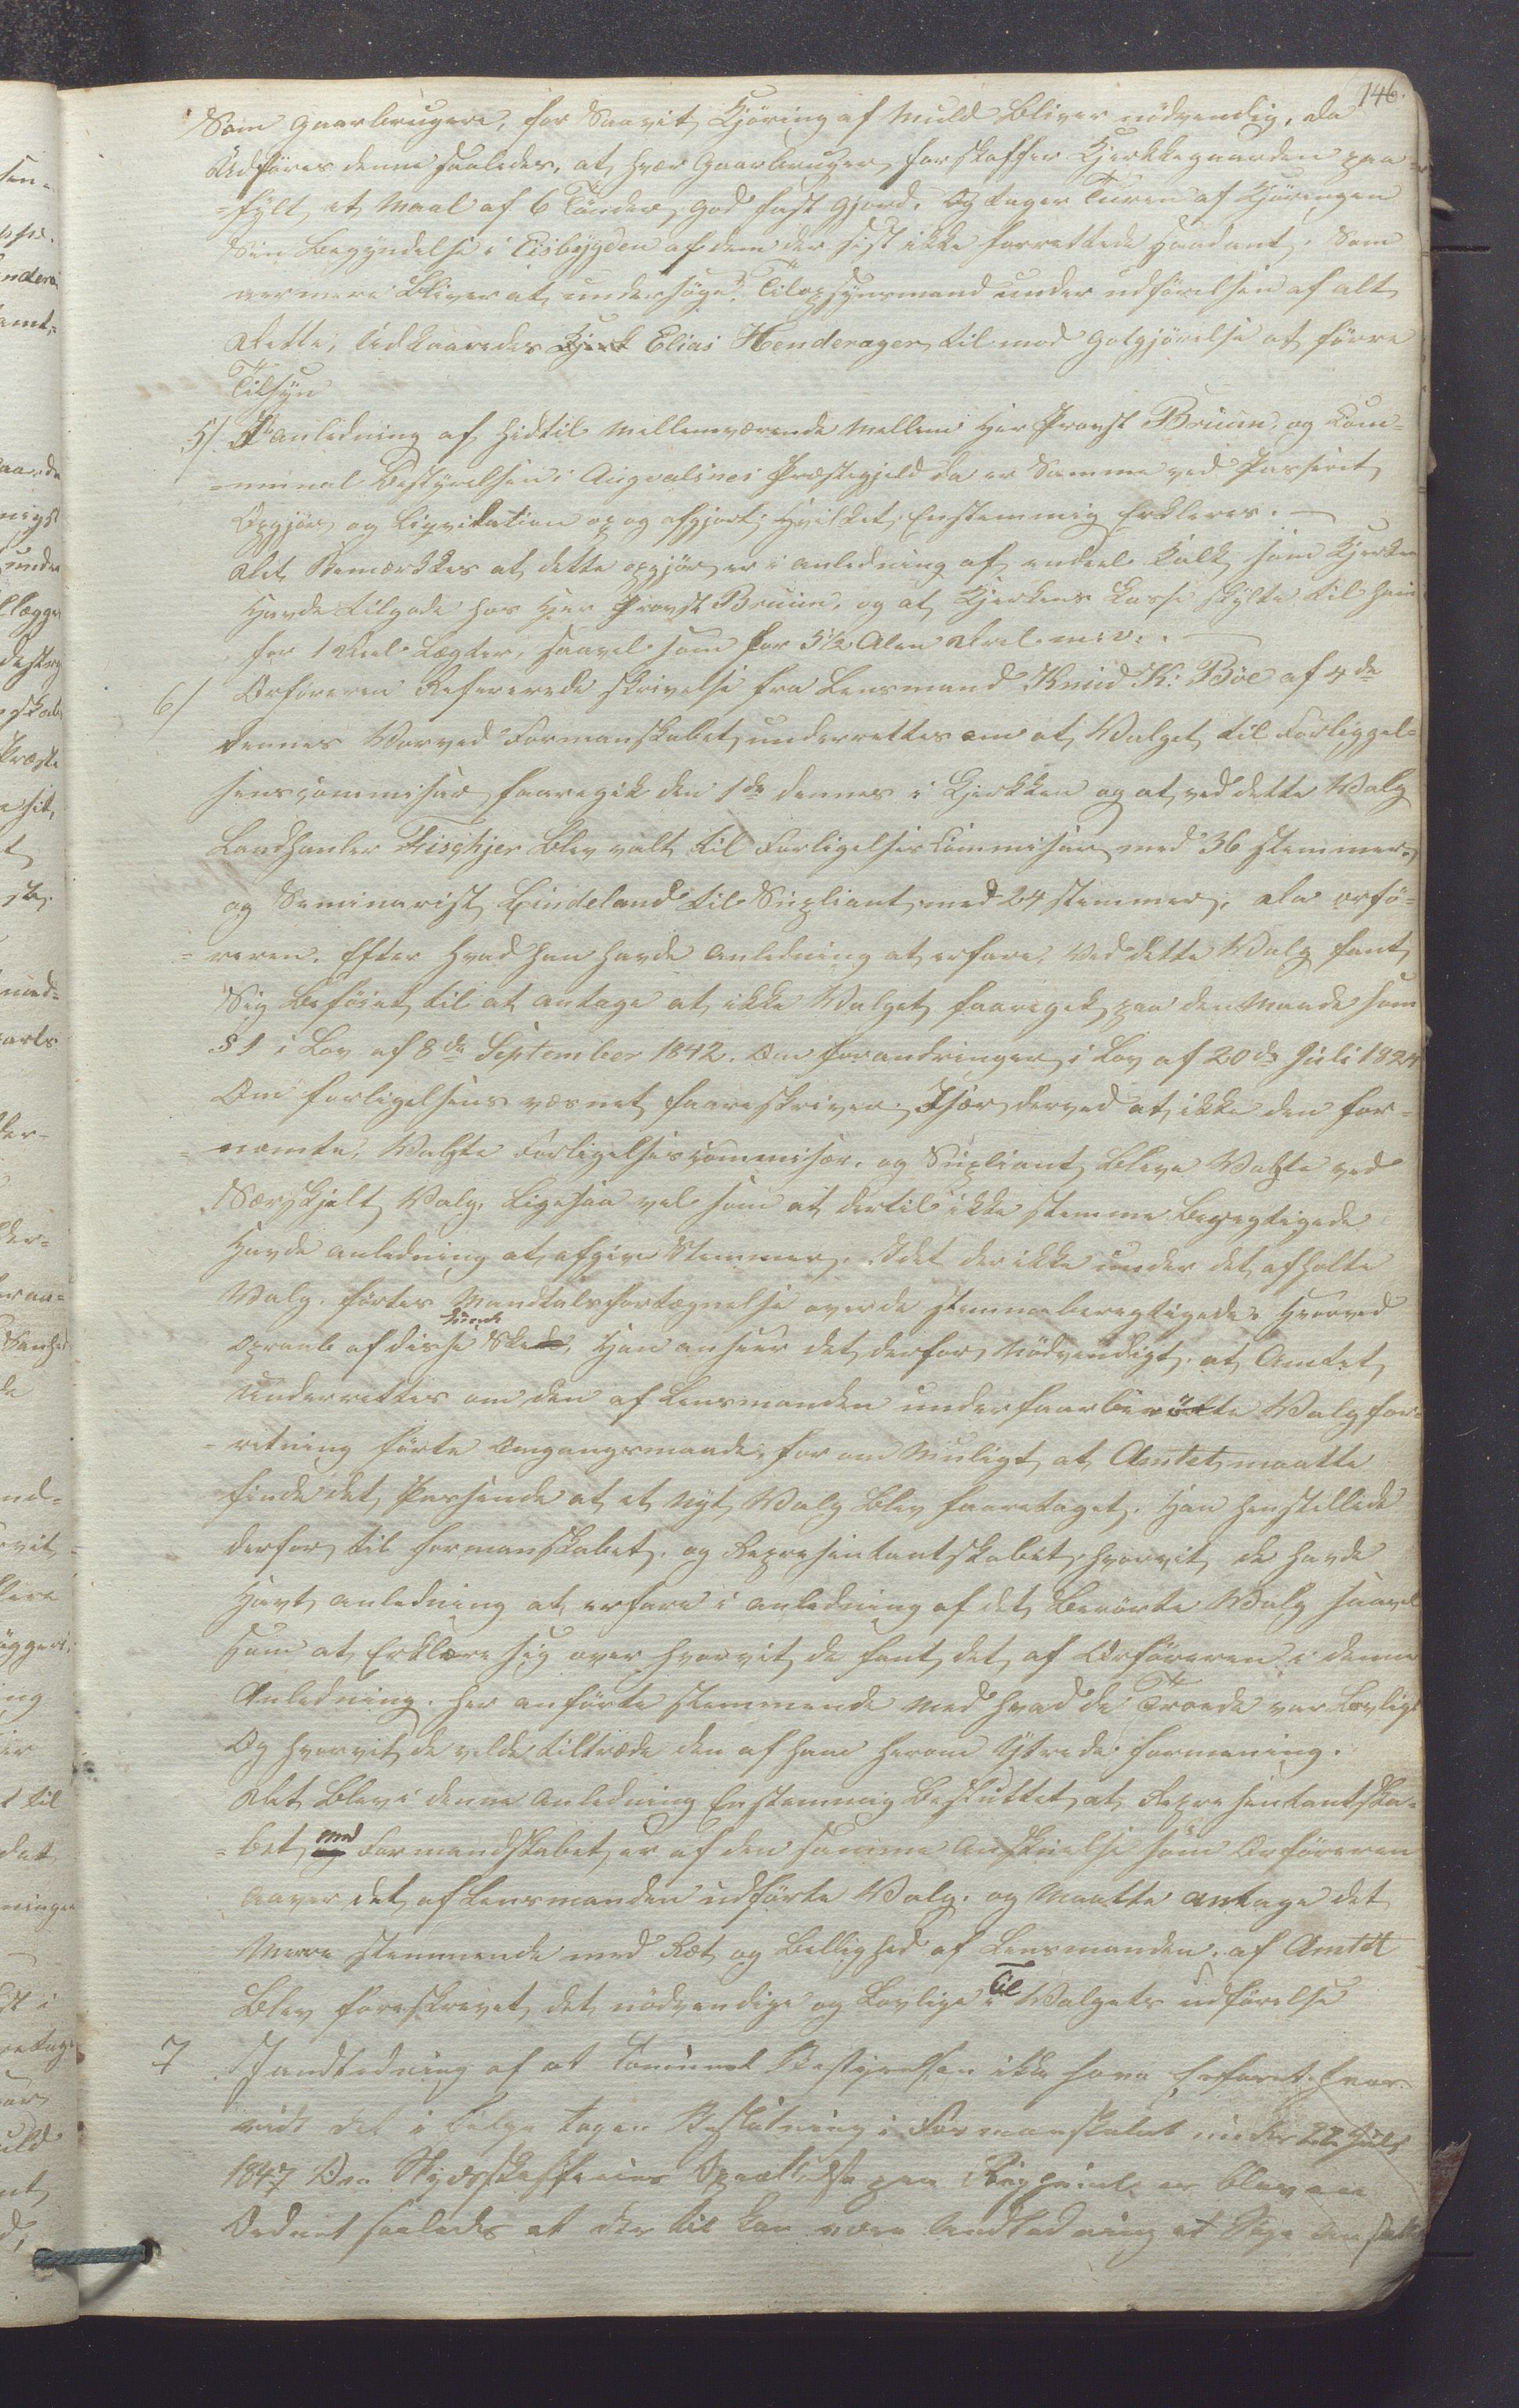 146.
Som gaarbrugere, for Saavit Kjöring af Muld bliver nödvendig, da
Udföres denne saaledes, at hver Gaarbruger forskaffer Kjerkkegaarden paa
=fylt et Maal af 6 Tönder god fast gjord. Og tager Turen af Kjöringen
Sin begyndelse i Eisbygden af dem der sist ikke forrettede saadant. Som
nermere bliver at undersöge. Tilopsynsmand under udförelsen af alt
dette, Udkaaredes Elias Henderager til mod Gotgjörelse at förre
Tilsyn
5/ I anledning af hidtil mellemværende mellem Her Provst Bruun, og Com=
=munal Bestyrelsen i Augvalsnes Præstegjeld da er Samme ved Passeret
Opgjör og Liqvidation op og afgjort; hvilket Enstemmig Erkleres. —
Det Bemærkkes at dette opgjör er i anledning af endeel Kalk som Kjerken
havde tilgode hos Her Provst Bruun, og at Kjerkens Casse skylte til ham
for 1 Deel Legter, saavel som for 5½ Alen Deel. m: v: . —
6/ Orföreren Refererede skrivelse fra Lensmand Knud K: Böe af 4de
dennes Vorved Formanskabet underrettes om at Valget til Forliggel=
senscommisær foregik den 1de dennes i Kjerkken og at ved dette Valg
Landhanler Fisskjer blev valt til Forligelsescommisær med 36 stemmer,
og Seminarist Lindeland til Supliant med 24 stemmer; da orfö=
=reren. Efter hvad han havde Anledning at erfare, Ved dette Valg fant
Sig beföiet til at antage at ikke Valget foregik paa den Maade som
§ 1 i Lov af 8de September 1842. Om forandringer i Lov af 20de Juli 1824
Om forligelsens væsnet foreskriver. Især derved at ikke den for=
=nemte, Valgte Forligelsescommisær. og Supliant bleve Valgte ved
Særskjelt Valg. Ligesaa vel som at dertil ikke stemme beregtigede
havde anledning at afgive Stemmer. Idet der ikke under det afholte
Valg. förtes Mandtalsfortegnelse over de stemmeberegtigede, hvorved
opraab af disse Skede, Han anseer det derfor Nödvendigt, at Amtet
underrettes om den af Lensmanden under forberörte Valgfor=
=retning förte Omgangsmaade, for om Muligt at Amtet maatte
finde det Passende at et Nyt Valg blev foretaget. Han henstillede
derfor til Formanskabet, og Representantskabet, hvorvit de havde
havt anledning at erfare i anledning af det Berörte Valg saavel
som at Erklære sig over hvorvit de fant det, af Orföreren i denne
Anledning. her anförte stemmende med hvad de Troede var Lovligt
Og hvorvit de vilde tiltræde den af ham herom Ytrede formening.
Det blev i denne Anledning Enstemmig Besluttet at Representantska=
=bet med Formandskabet, er af den samme anskuelse som Orföreren
aaver det af Lensmanden udförte Valg. og Maatte antage det
Mere stemmende med Ret og Billighed at Lensmanden. af Amtet
blev foreskrevet det nödvendige og Lovlige Til Valgets udförelse
7 I andledning af at Comunal Bestyrelsen ikke have Erfaret hvor=
vidt det i fölge tagen Beslutning i Formanskabet under 22 Juli
1847 Om Skydsskafferiens Oprettelse paa er bleven
Ordnet saaledes at der til kan være Andledning at Söge